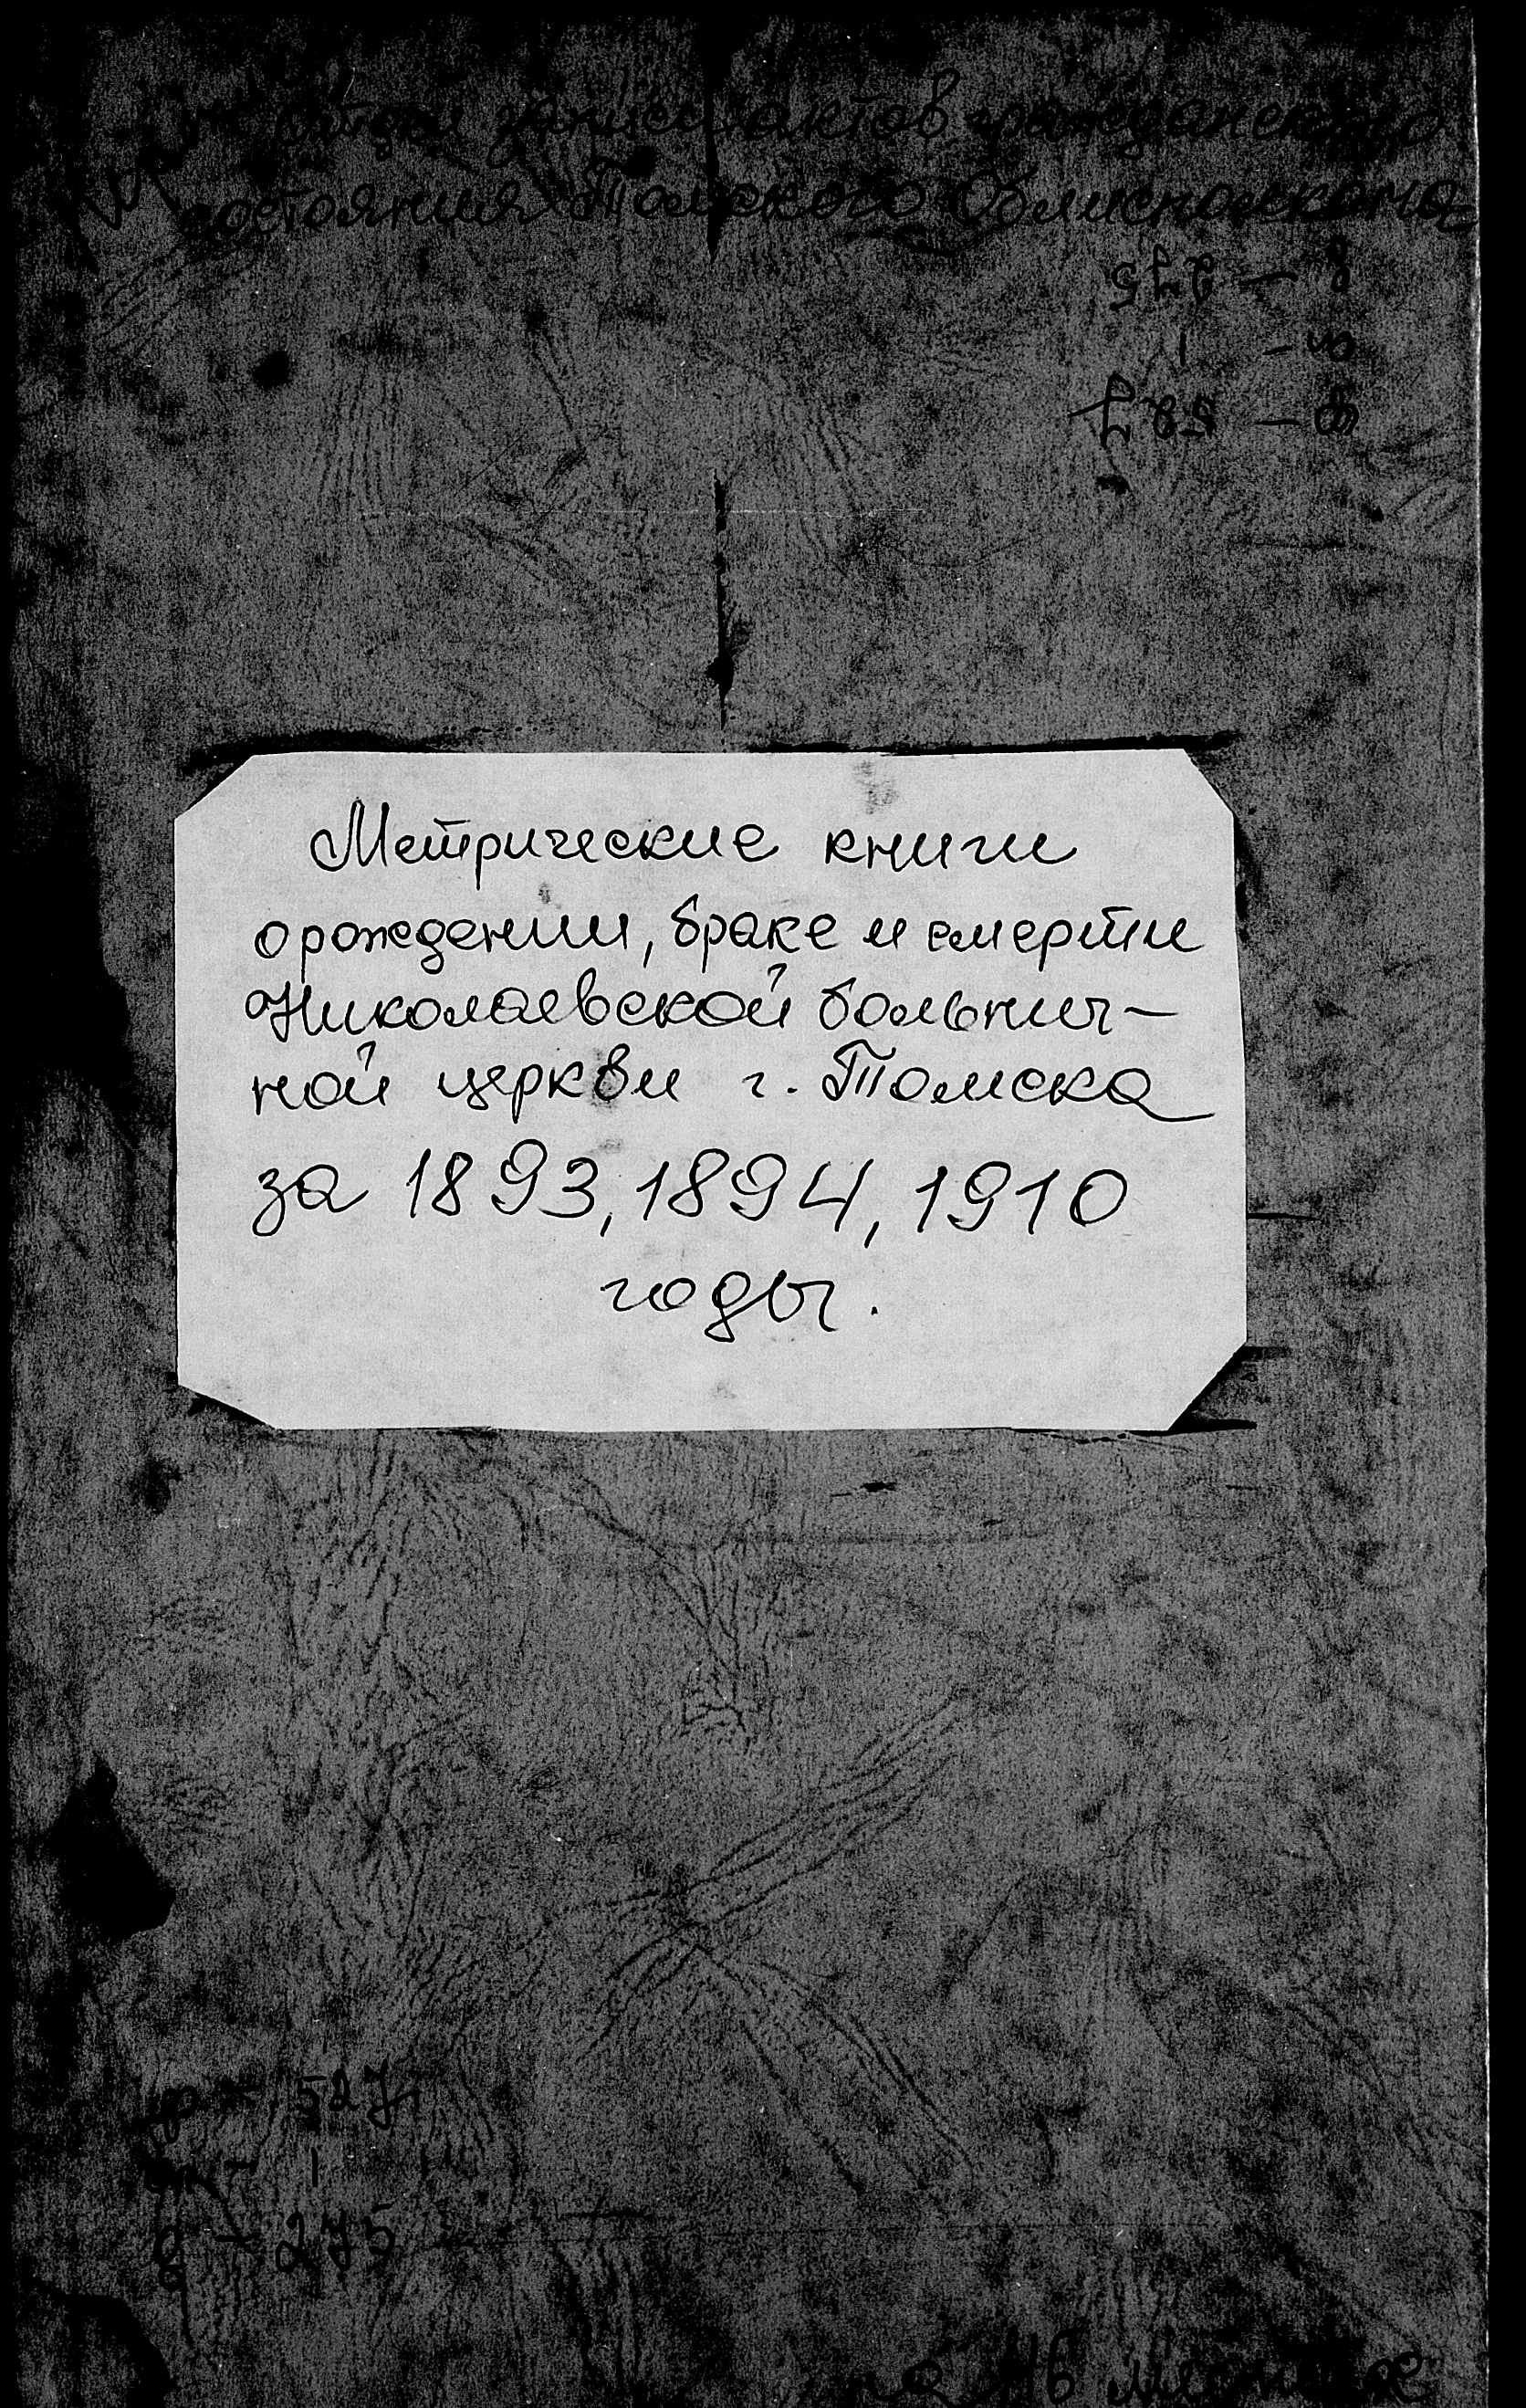 отдел записи актов гражданского
состояния Томского Облисполкома
д — 275
оп — 1
Ф — 527
Метрические книги
о рождении, браке и смерти
Николаевской больнич—
ной церкви г. Томска
за 1893, 1894, 1910
годы.
ф — 527
оп — 1
д — 275
на листах